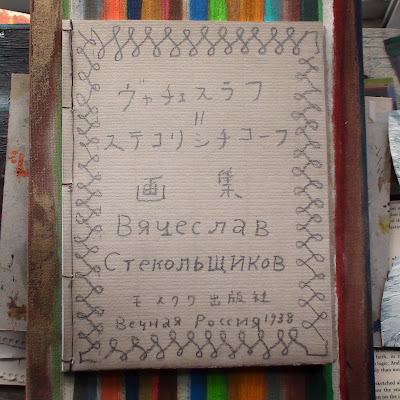 ヴャチェスラフ
=
ステコリシチコーフ
画集
Вячеслав
Стекольщиков
モスクワ 出版社
Вечная Россия 1938